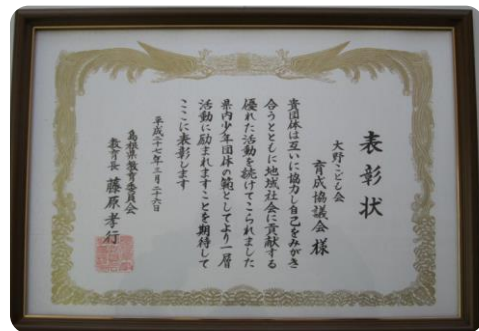 表彰状
大野こども会
育成協議会 様
貴団体は互いに協力し自己をみがき
合うとともに地域社会に貢献する
優れた活動を続けてこられました
県内少年団体の範としてより一層
活動に励まれますことを期待して
ここに表彰します
平成二十七年二月二十六日
島根県教育委員会
教育長 藤原孝行